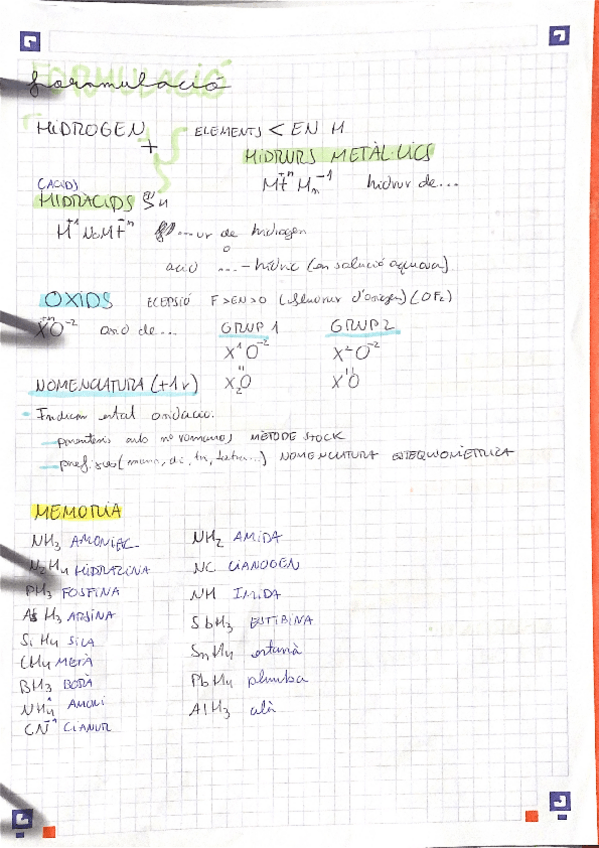 FORMULACIÓ
formulació
HIDROGEN + ELEMENTS < EN H
HIDRURS METÀL·LICS
M⁺ⁿHₙ⁻¹ hidrur de...
(ÀCIDS)
HIDRÀCIDS
H⁺¹NoM⁺ⁿ ...ur de hidrogen
o
àcid ...-hídric (en solució aquosa)
OXIDS ECEPSIÓ F > EN > O (fluorur d'oxigen) (OF₂)
X⁺ⁿO⁻² oxid de... GRUP 1 GRUP 2
X¹O⁻² X²O⁻²
NOMENCLATURA (+1 v) X₂O XO
- Indicar estat oxidació.
- parentesis amb nº romanos METODE STOCK
- prefixos (mono, di, tri, tetra...) NOMENCLATURA ESTEQUIOMETRICA
MEMORIA
NH₃ AMONIAC NH₂ AMIDA
N₂H₄ HIDRAZINA NC CIANOGEN
PH₃ FOSFINA NH IMIDA
AsH₃ ARSINA SbH₃ ESTIBINA
SiH₄ SILA SnH₄ estannà
CH₄ METÀ PbH₄ plumba
BH₃ BORÀ AlH₃ alà
NH₄⁺ AMONI
CN⁻¹ CIANUR